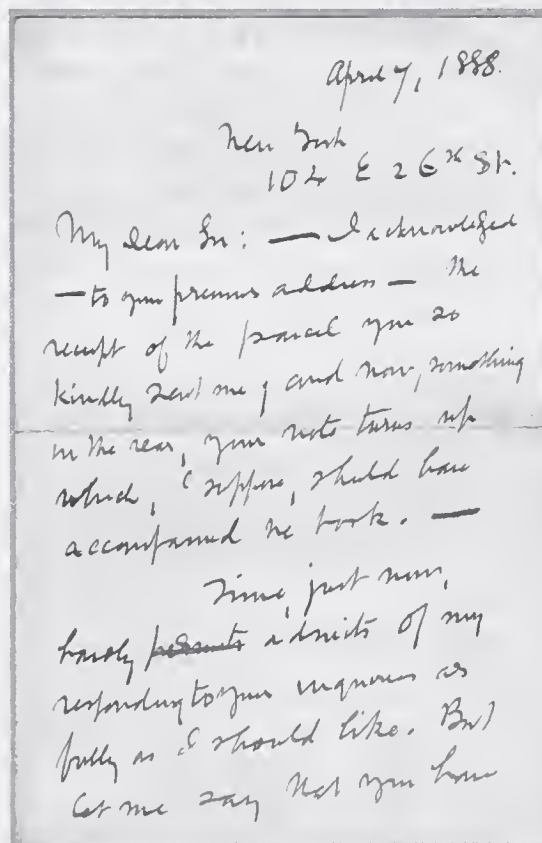 April 7, 1888.
New York
104 E 26th St.
My Dear Sir: — I acknowledged
— to your previous address — the
receipt of the parcel you so
kindly sent me; and now, something
in the rear, your note turns up
which, I suppose, should have
accompanied the book. —
Time, just now,
hardly permits admits of my
responding to your inquiries as
fully as I should like. But
let me say that you have